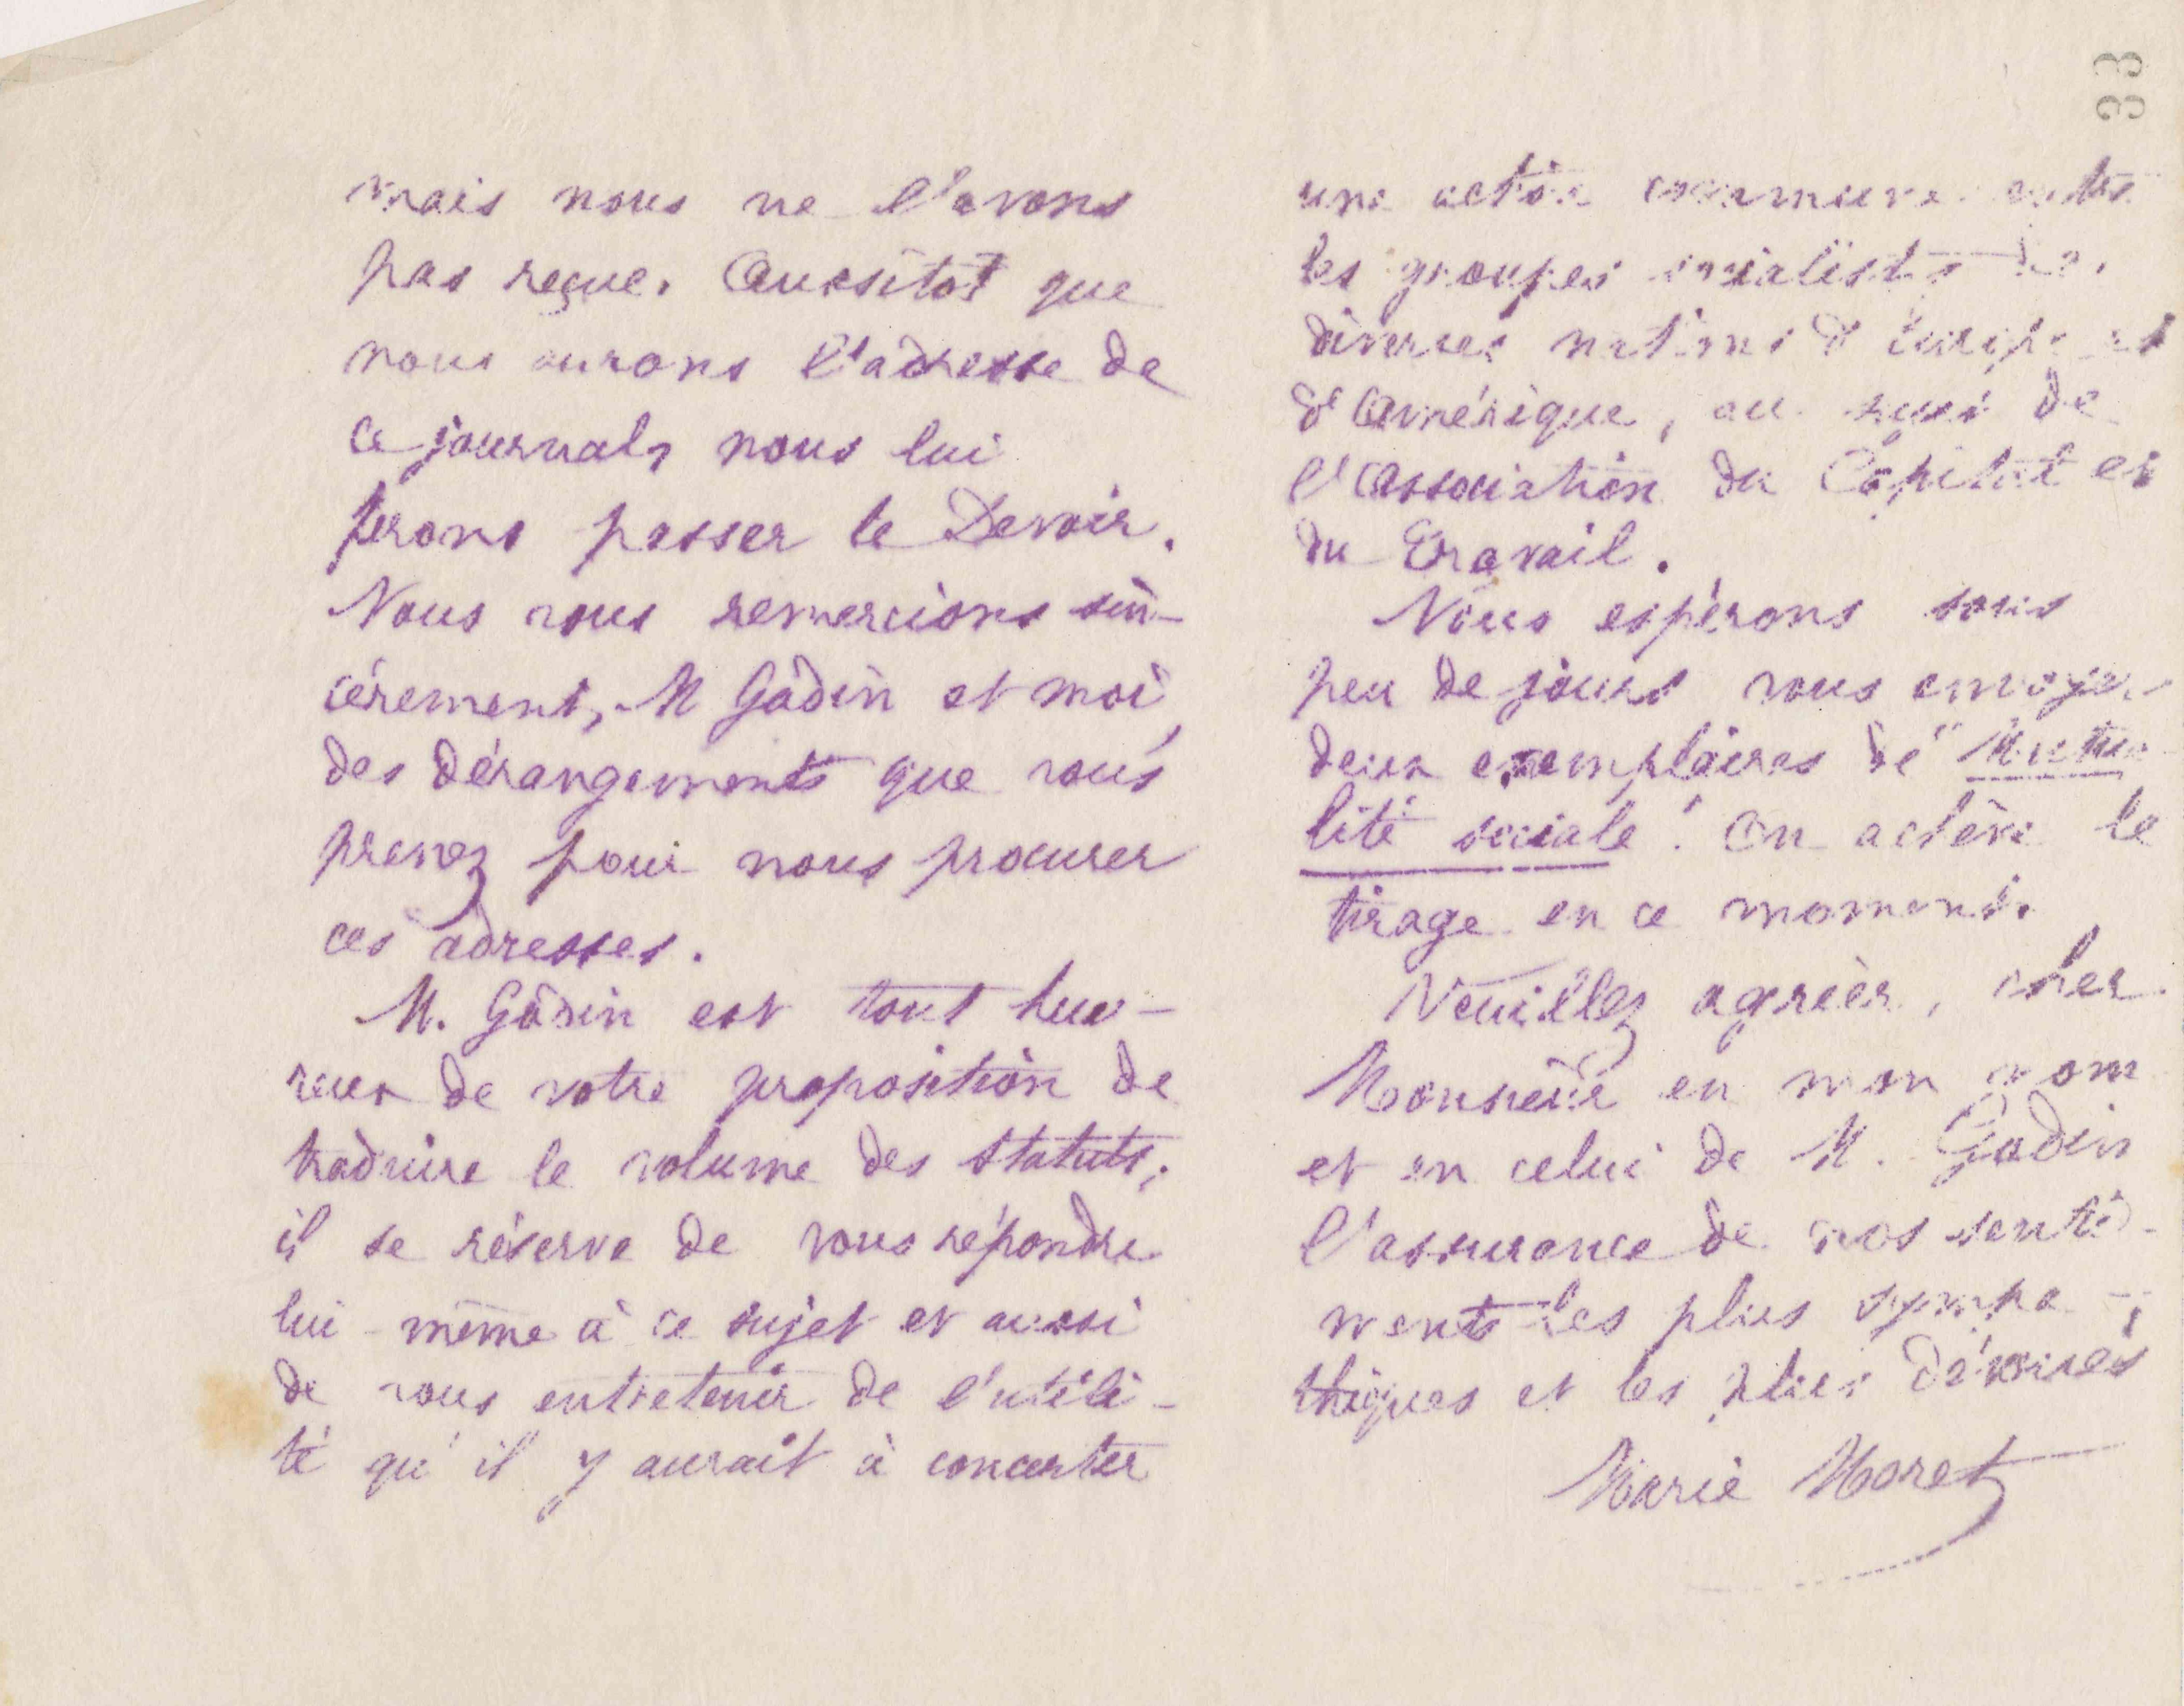 33
mais nous ne l'avons
pas reçue. Aussitot que
nous aurons l'adresse de
ce journal, nous lui
ferons passer le Devoir.
Nous vous remercions sin-
cérement, M Godin et moi,
des dérangements que vous
prenez pour nous procurer
ces adresses.
M. Godin est tout heu-
reux de votre proposition de
traduire le volume des statuts;
il se réserve de vous répondre
lui-même à ce sujet et aussi
de vous entretenir de l'utili-
té qu'il y aurait à concerter
une action commune entre
les groupes socialistes des
diverses nations d'Europe et
d'Amérique, au sujet de
l'Association du Capital et
du Travail.
Nous espérons sous
peu de jours vous envoyer
deux exemplaires de "Mutua
lité sociale". On achève le
tirage en ce moment.
Veuillez agréer, cher
Monsieur en mon nom
et en celui de M. Godin
l'assurance de nos senti-
ments les plus sympa-
thiques et les plus dévoués
Marie Moret